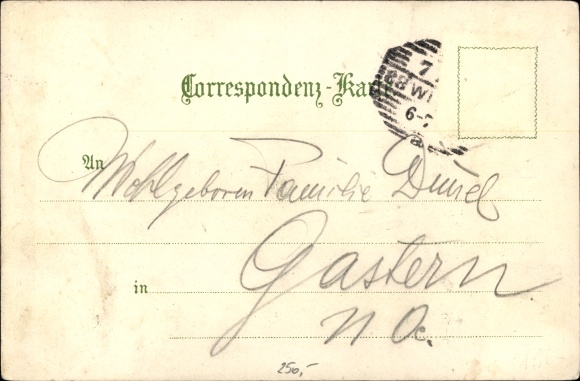 Correspondenz-Karte
7
88 WI
6-7
An Wohlgeboren Familie
in Gastern
N Oe.
250,-